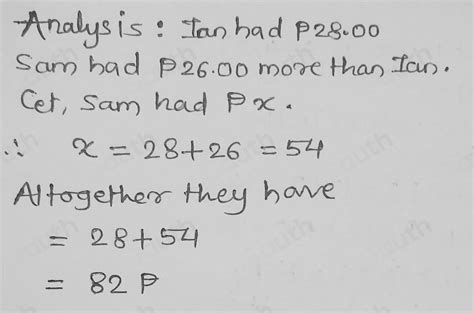 Analysis : Ian had ₱28.00
Sam had ₱26.00 more than Ian.
Cet, Sam had ₱ x.
∴ x = 28+26 = 54
Altogether they have
= 28+54
= 82 ₱